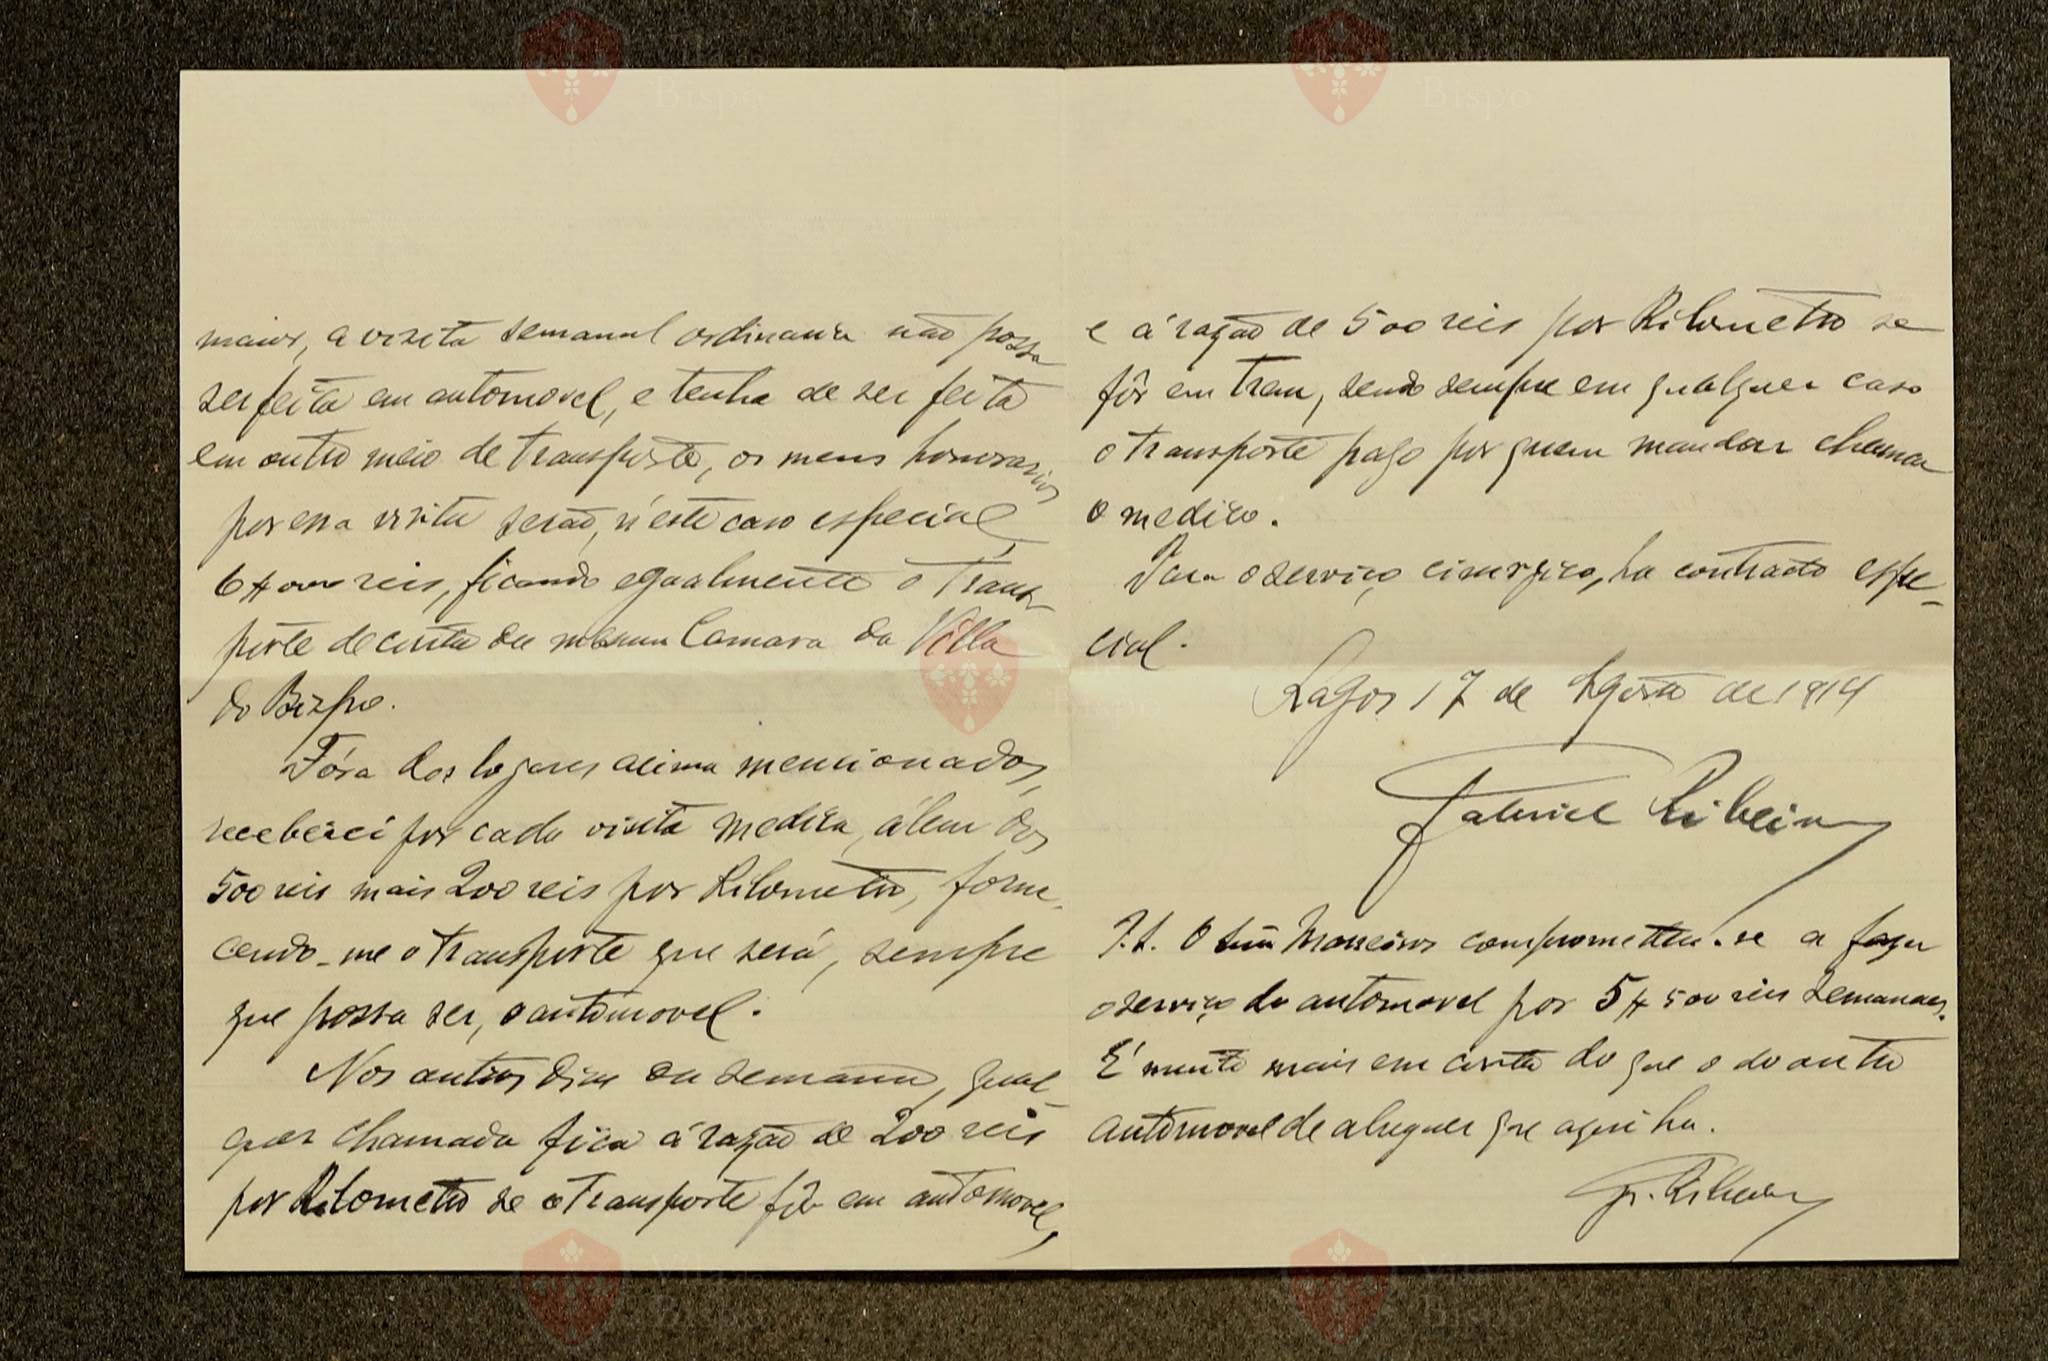 maior, a visita semanal ordinaria não possa
ser feita em automovel, e tenha de ser feita
em outro meio de transporte, os meus honorarios
por essa visita serão, n'este caso especial,
6$000 reis, ficando egualmente o trans-
porte de conta da mesma Camara da Villa
do Bispo.
Fóra dos logares acima mencionados,
receberei por cada visita medica, álem dos
500 reis mais 200 reis por Kilometro, forne-
cendo-me o transporte que será, sempre
que possa ser, o automovel.
Nos outros dias da semana, qual-
quer chamada fica á razão de 200 reis
por Kilometro se o transporte fôr em automovel,
e á razão de 500 reis por Kilometro se
fôr em trem, sendo sempre em qualquer caso
o transporte pago por quem mandar chamar
o medico.
Para o serviço cirurgico, ha contracto espe-
cial.
Lagos 17 de Agosto de 1914
Gabriel Ribeiro
O compromette-se a fazer
o serviço do automovel por 5$500 reis semanaes.
É muito mais em conta do que o do outro
automovel de aluguer que aqui ha.
G. Ribeiro
Vila do
Bispo